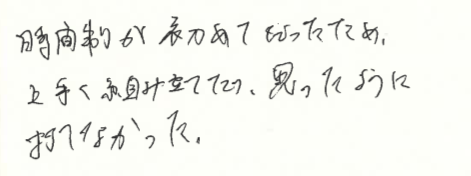 時間制が初めてだったため、
上手く組み立てたり、思ったように
打てなかった。